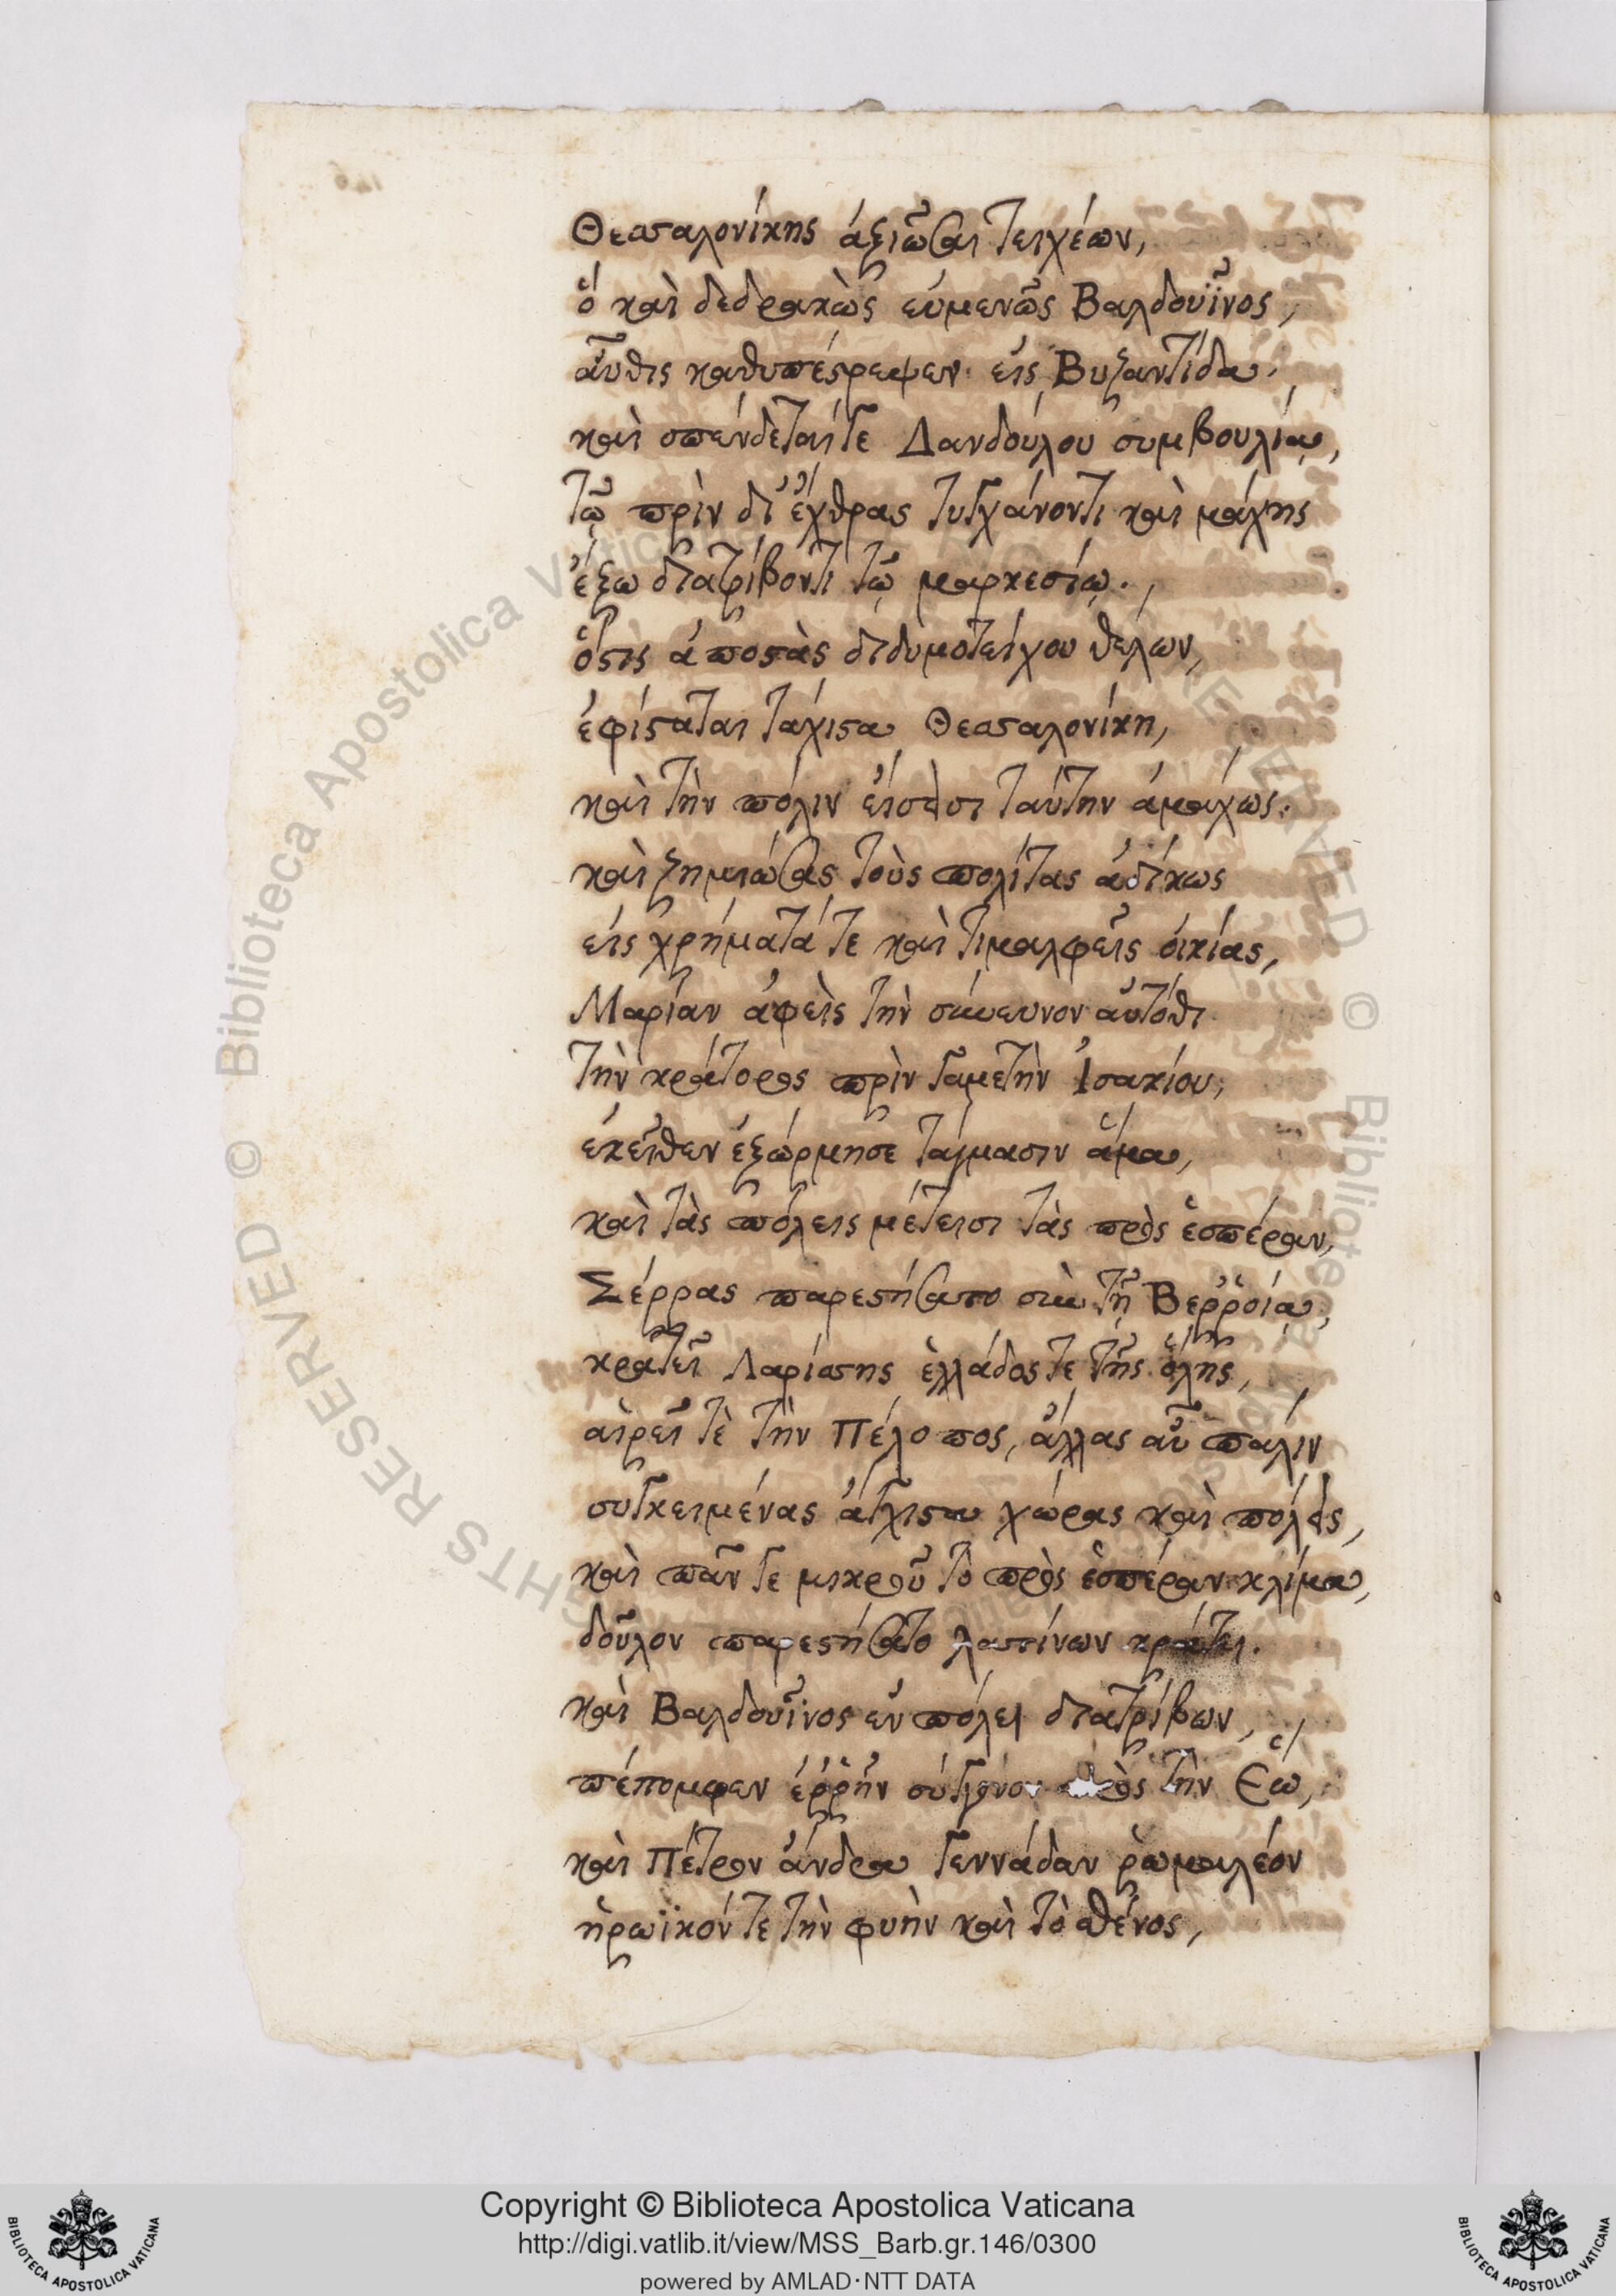 Θεσσαλονίκης ἀξιῶσαι τειχέων,
ὃ καὶ δεδρακὼς εὐμενῶς Βαλδουῖνος,
αὖθις καθυπέστρεψεν εἰς Βυζαντίδα.
καὶ σπένδεταί γε Δανδούλου συμβουλίᾳ,
τῷ πρὶν δι' ἔχθρας τυγχάνοντι καὶ μάχης
ἔξω διατρίβοντι τῷ μαρκεσίῳ.
ὅστις ἀποστὰς διδυμοτείχου θέλων,
ἐφίσταται τάχιστα Θεσσαλονίκῃ,
καὶ τὴν πόλιν εἴσεισι ταύτην ἀμάχως.
καὶ ζημιώσας τοὺς πολίτας ἀδίκως
εἰς χρήματά τε καὶ τιμαλφεῖς οἰκίας,
Μαρίαν ἀφεὶς τὴν σύνευνον αὐτόθι
τὴν κράτορος πρὶν γαμετὴν Ἰσακίου,
ἐκεῖθεν ἐξώρμησε τάγμασιν ἅμα,
καὶ τὰς πόλεις μέτεισι τὰς πρὸς ἑσπέραν,
Σέρρας παρεστήσατο σὺν τῇ Βερροίᾳ,
κρατεῖ Λαρίσσης ἑλλάδος τε τῆς ὅλης,
αἱρεῖ τὲ τὴν Πέλοπος, ἄλλας αὖ πάλιν
συγκειμένας ἄγχιστα χώρας καὶ πόλεις,
καὶ πᾶν γε μικροῦ τὸ πρὸς ἑσπέραν κλίμα,
δοῦλον παρεστήσατο λατίνων κράτει.
καὶ Βαλδουῖνος ἐν πόλει διατρίβων,
πέπομφεν ἐρρῆν σύγγονον πρὸς τὴν Ἕω,
καὶ Πέτρον ἄνδρα γεννάδαν ῥωμαλέον
ἡρωϊκόν τε τὴν φυὴν καὶ τὸ σθένος,
Copyright © Biblioteca Apostolica Vaticana
http://digi.vatlib.it/view/MSS_Barb.gr.146/0300
powered by AMLAD·NTT DATA
BIBLIOTECA APOSTOLICA VATICANA
BIBLIOTECA APOSTOLICA VATICANA